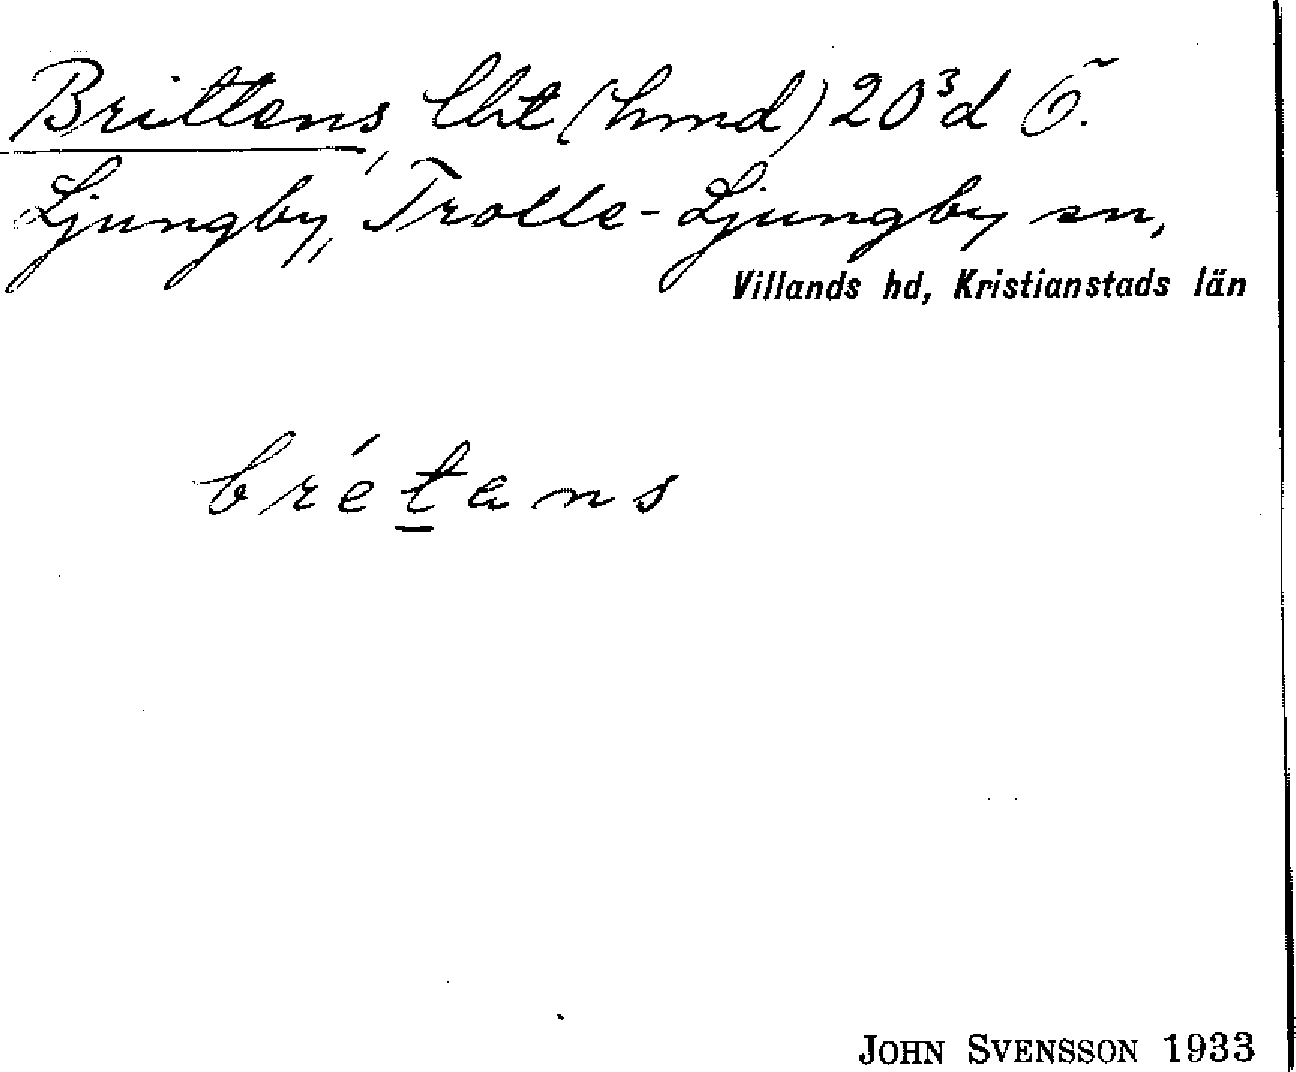 Brittens, lht (hmd) 20³d Ö.
Ljungby, Trolle-Ljungby sn,
Villands hd, Kristianstads län
brét̲ans
JOHN SVENSSON 1933